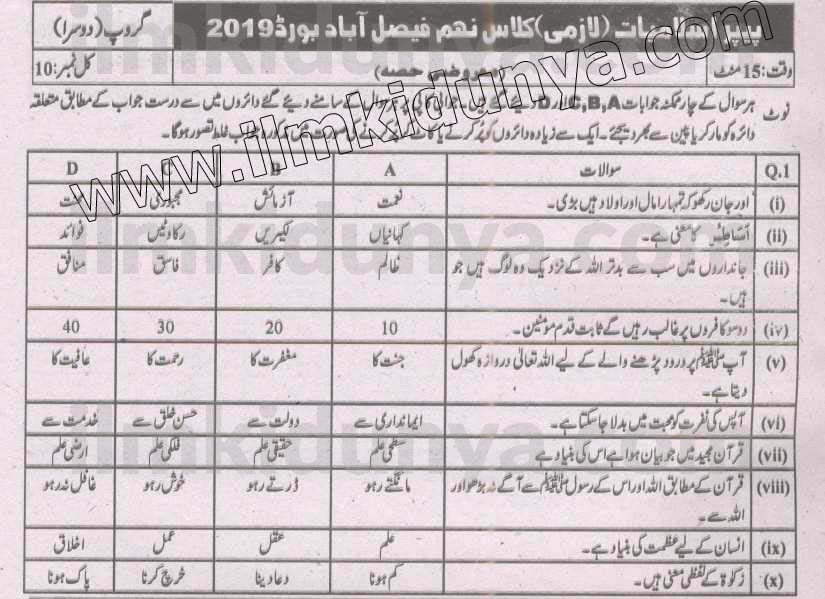 پیپر اسلامیات (لازمی) کلاس نہم فیصل آباد بورڈ 2019 گروپ (دوسرا)
وقت: 15 منٹ (معروضی حصہ) کل نمبر: 10
نوٹ ہر سوال کے چار ممکنہ جوابات A,B,C اور D دیئے گئے ہیں۔ جوابی کاپی پر ہر سوال کے سامنے دیئے گئے دائروں میں سے درست جواب کے مطابق متعلقہ
دائرہ کو مارکر یا پین سے بھر دیجئے۔ ایک سے زیادہ دائروں کو پُر کرنے یا کاٹ کر پُر کرنے کی صورت میں مذکورہ جواب غلط تصور ہوگا۔
Q.1 سوالات A B C D
(i) اور جان رکھو کہ تمہارا مال اور اولاد ہیں بڑی۔ نعمت آزمائش مجبوری
(ii) اَسَاطِیْرُ کا معنی ہے۔ کہانیاں لکیریں رکاوٹیں فوائد
(iii) جانداروں میں سب سے بدتر اللہ کے نزدیک وہ لوگ ہیں جو ظالم کافر فاسق منافق
ہیں۔
(iv) دو سو کافروں پر غالب رہیں گے ثابت قدم مومنین۔ 10 20 30 40
(v) آپ ﷺ پر درود پڑھنے والے کے لیے اللہ تعالیٰ دروازہ کھول جنت کا مغفرت کا رحمت کا عافیت کا
دیتا ہے۔
(vi) آپس کی نفرت کو محبت میں بدلا جاسکتا ہے۔ ایمانداری سے دولت سے حسن خلق سے خدمت سے
(vii) قرآن مجید میں جو بیان ہوا ہے اس کی بنیاد ہے سطحی علم حقیقی علم فلکی علم ارضی علم
(viii) قرآن کے مطابق اللہ اور اس کے رسول ﷺ سے آگے نہ بڑھو اور مانگتے رہو ڈرتے رہو خوش رہو غافل نہ رہو
اللہ سے۔
(ix) انسان کے لیے عظمت کی بنیاد ہے۔ علم عقل عمل اخلاق
(x) زکوٰۃ کے لفظی معنی ہیں۔ کم ہونا دعا دینا خرچ کرنا پاک ہونا
www.ilmkidunya.com
ilmkidunya.com
ilmkidunya.com
ilmkidunya.com